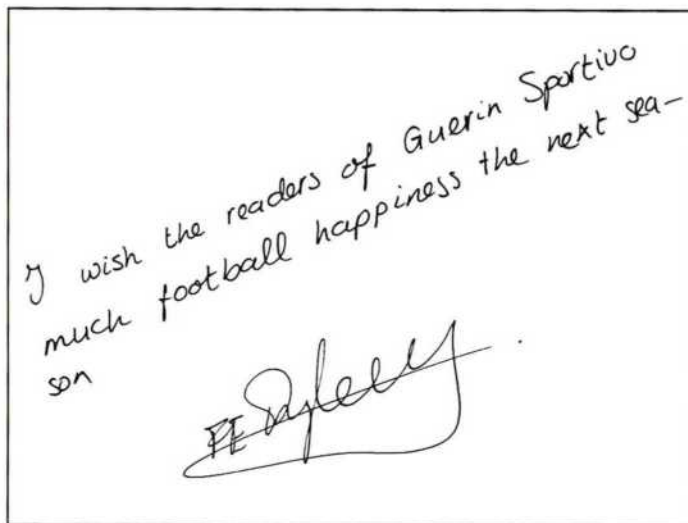 I wish the readers of Guerin Sportivo
much football happiness the next sea-
son